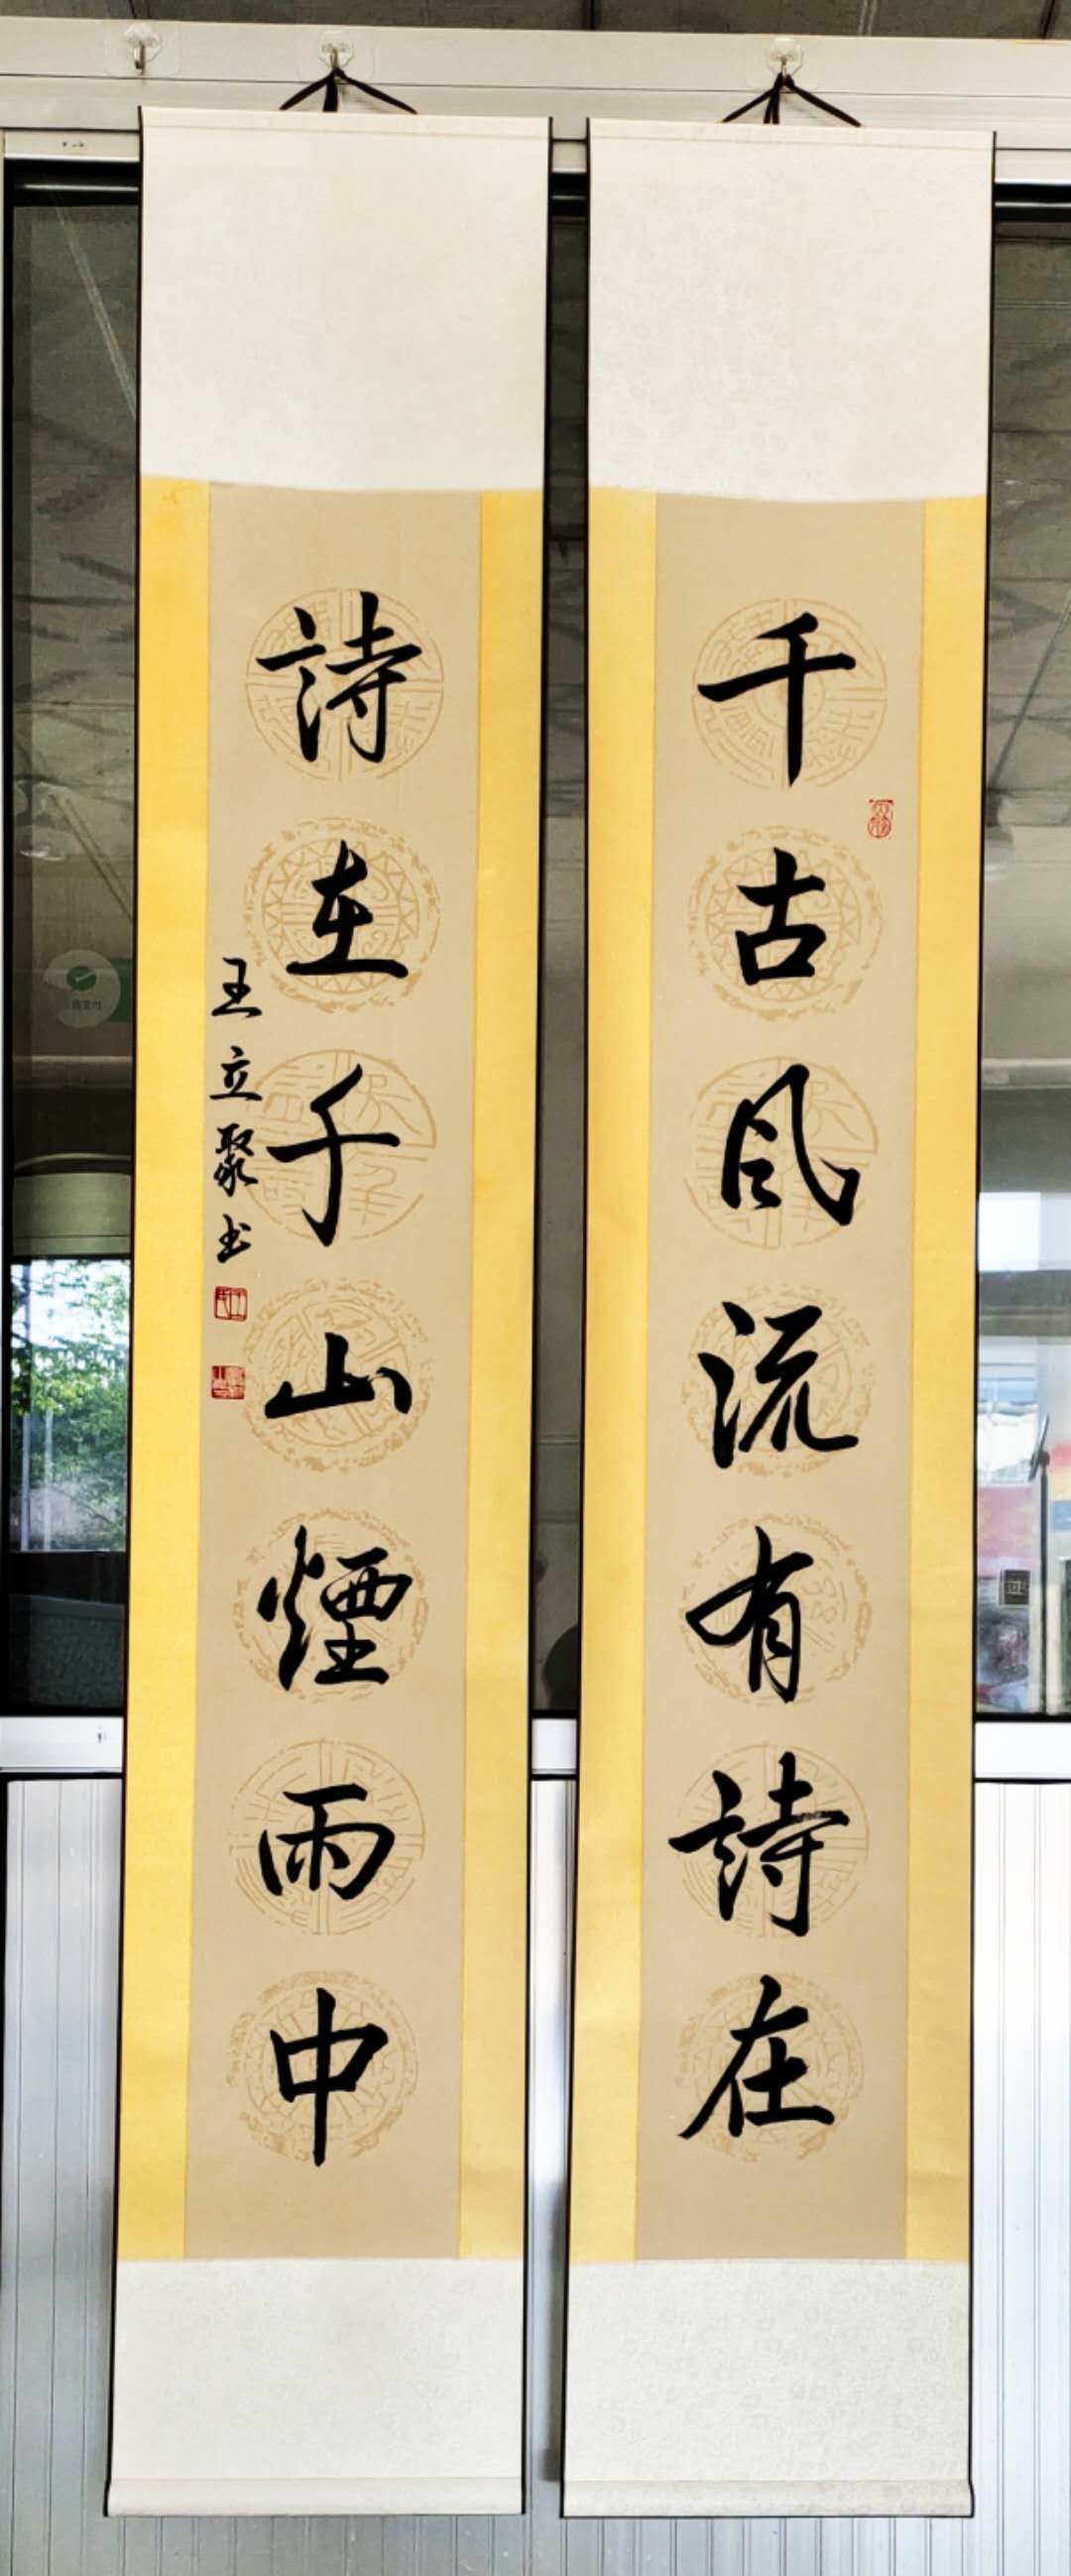 千古风流有詩在
詩在千山煙雨中
王立聚书